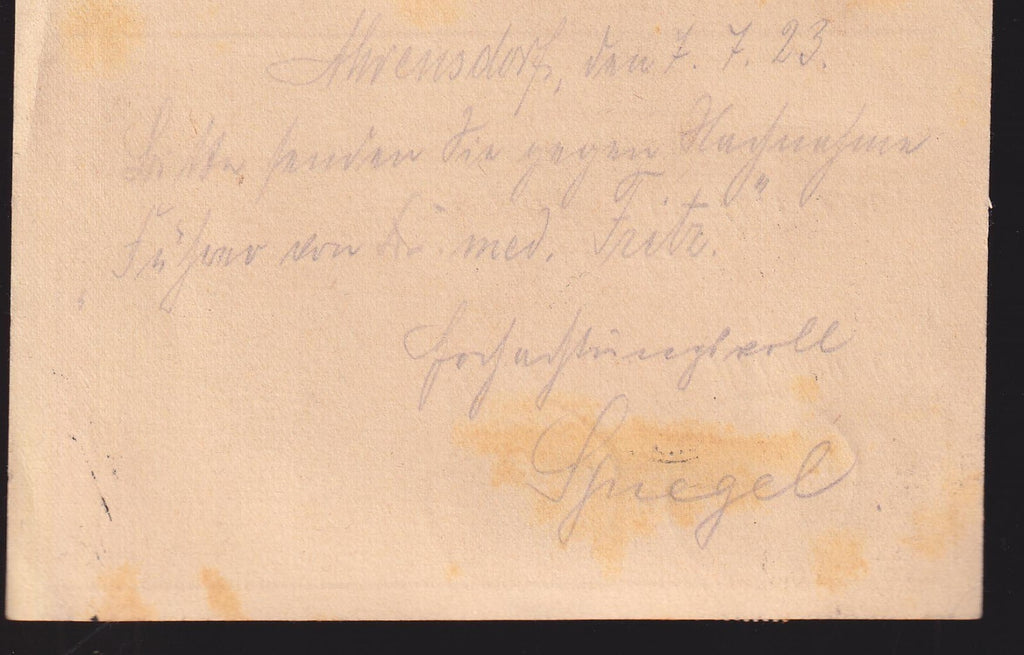 Ahrensdorf, den 7. 7. 23.
Bitte senden Sie gegen Nachnahme
Führer von Dr. med. Fritz.
Hochachtungsvoll
Spiegel